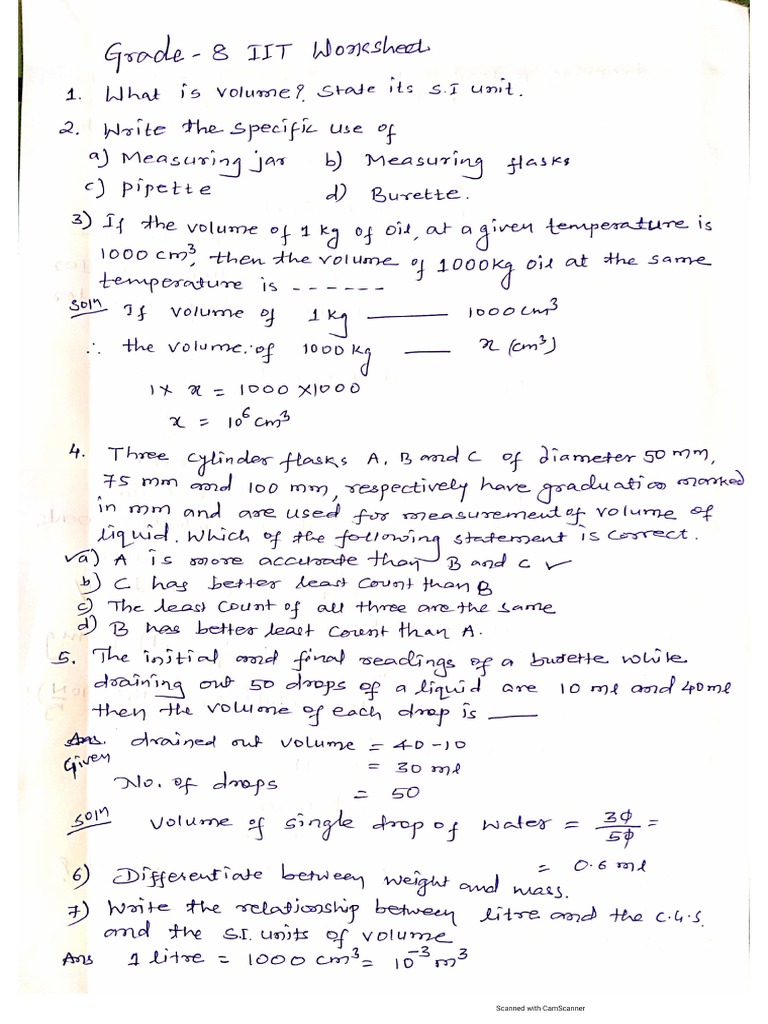 Grade - 8 IIT Worksheet
1. What is volume? State its S.I unit.
2. Write the specific use of
a) Measuring jar b) Measuring flasks
c) Pipette d) Burette.
3) If the volume of 1 kg of oil, at a given temperature is
1000 cm³, then the volume of 1000kg oil at the same
temperature is ------
Soln If volume of 1 kg —— 1000 cm³
∴ the volume of 1000 kg —— x (cm³)
1 × x = 1000 × 1000
x = 10⁶ cm³
4. Three cylinder flasks A, B and C of diameter 50 mm,
75 mm and 100 mm, respectively have graduation marked
in mm and are used for measurement of volume of
liquid. Which of the following statement is correct.
✓a) A is more accurate than B and C ✓
b) C has better least count than B
c) The least count of all three are the same
d) B has better least count than A.
5. The initial and final readings of a burette while
draining out 50 drops of a liquid are 10 ml and 40 ml
then the volume of each drop is ——
Ans. drained out volume = 40 - 10
Given = 30 ml
No. of drops = 50
Soln Volume of single drop of water = 30/50 =
= 0.6 ml
6) Differentiate between weight and mass.
7) Write the relationship between litre and the C.G.S.
and the S.I. units of volume
Ans 1 litre = 1000 cm³ = 10⁻³ m³
Scanned with CamScanner